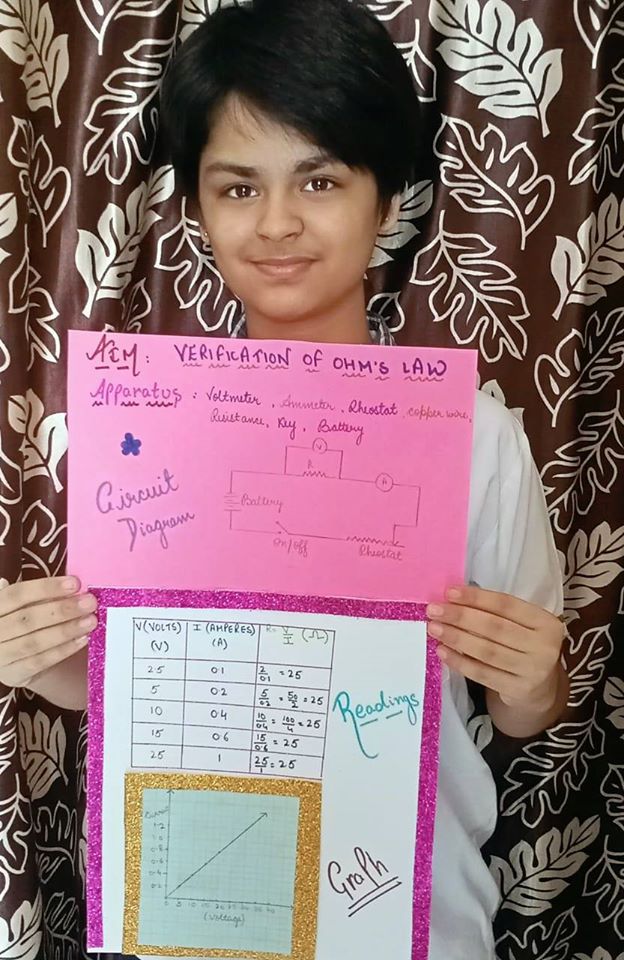 AIM: VERIFICATION OF OHM'S LAW
Apparatus : Voltmeter, Ammeter, Rheostat, copper wire,
Resistance, Key, Battery
Circuit
Diagram
V
R
A
Battery
on/off
Rheostat
V(VOLTS) (V) I (AMPERES) (A) R= V/I (Ω)
2.5 0.1 2/0.1 = 25
5 0.2 5/0.2 = 50/2 = 25
10 0.4 10/0.4 = 100/4 = 25
15 0.6 15/0.6 = 25
25 1 25/1 = 25
Readings
Current
1.2
1.0
0.8
0.6
0.4
0.2
0 5 10 15 20 25 30 35 40
(Voltage)
Graph